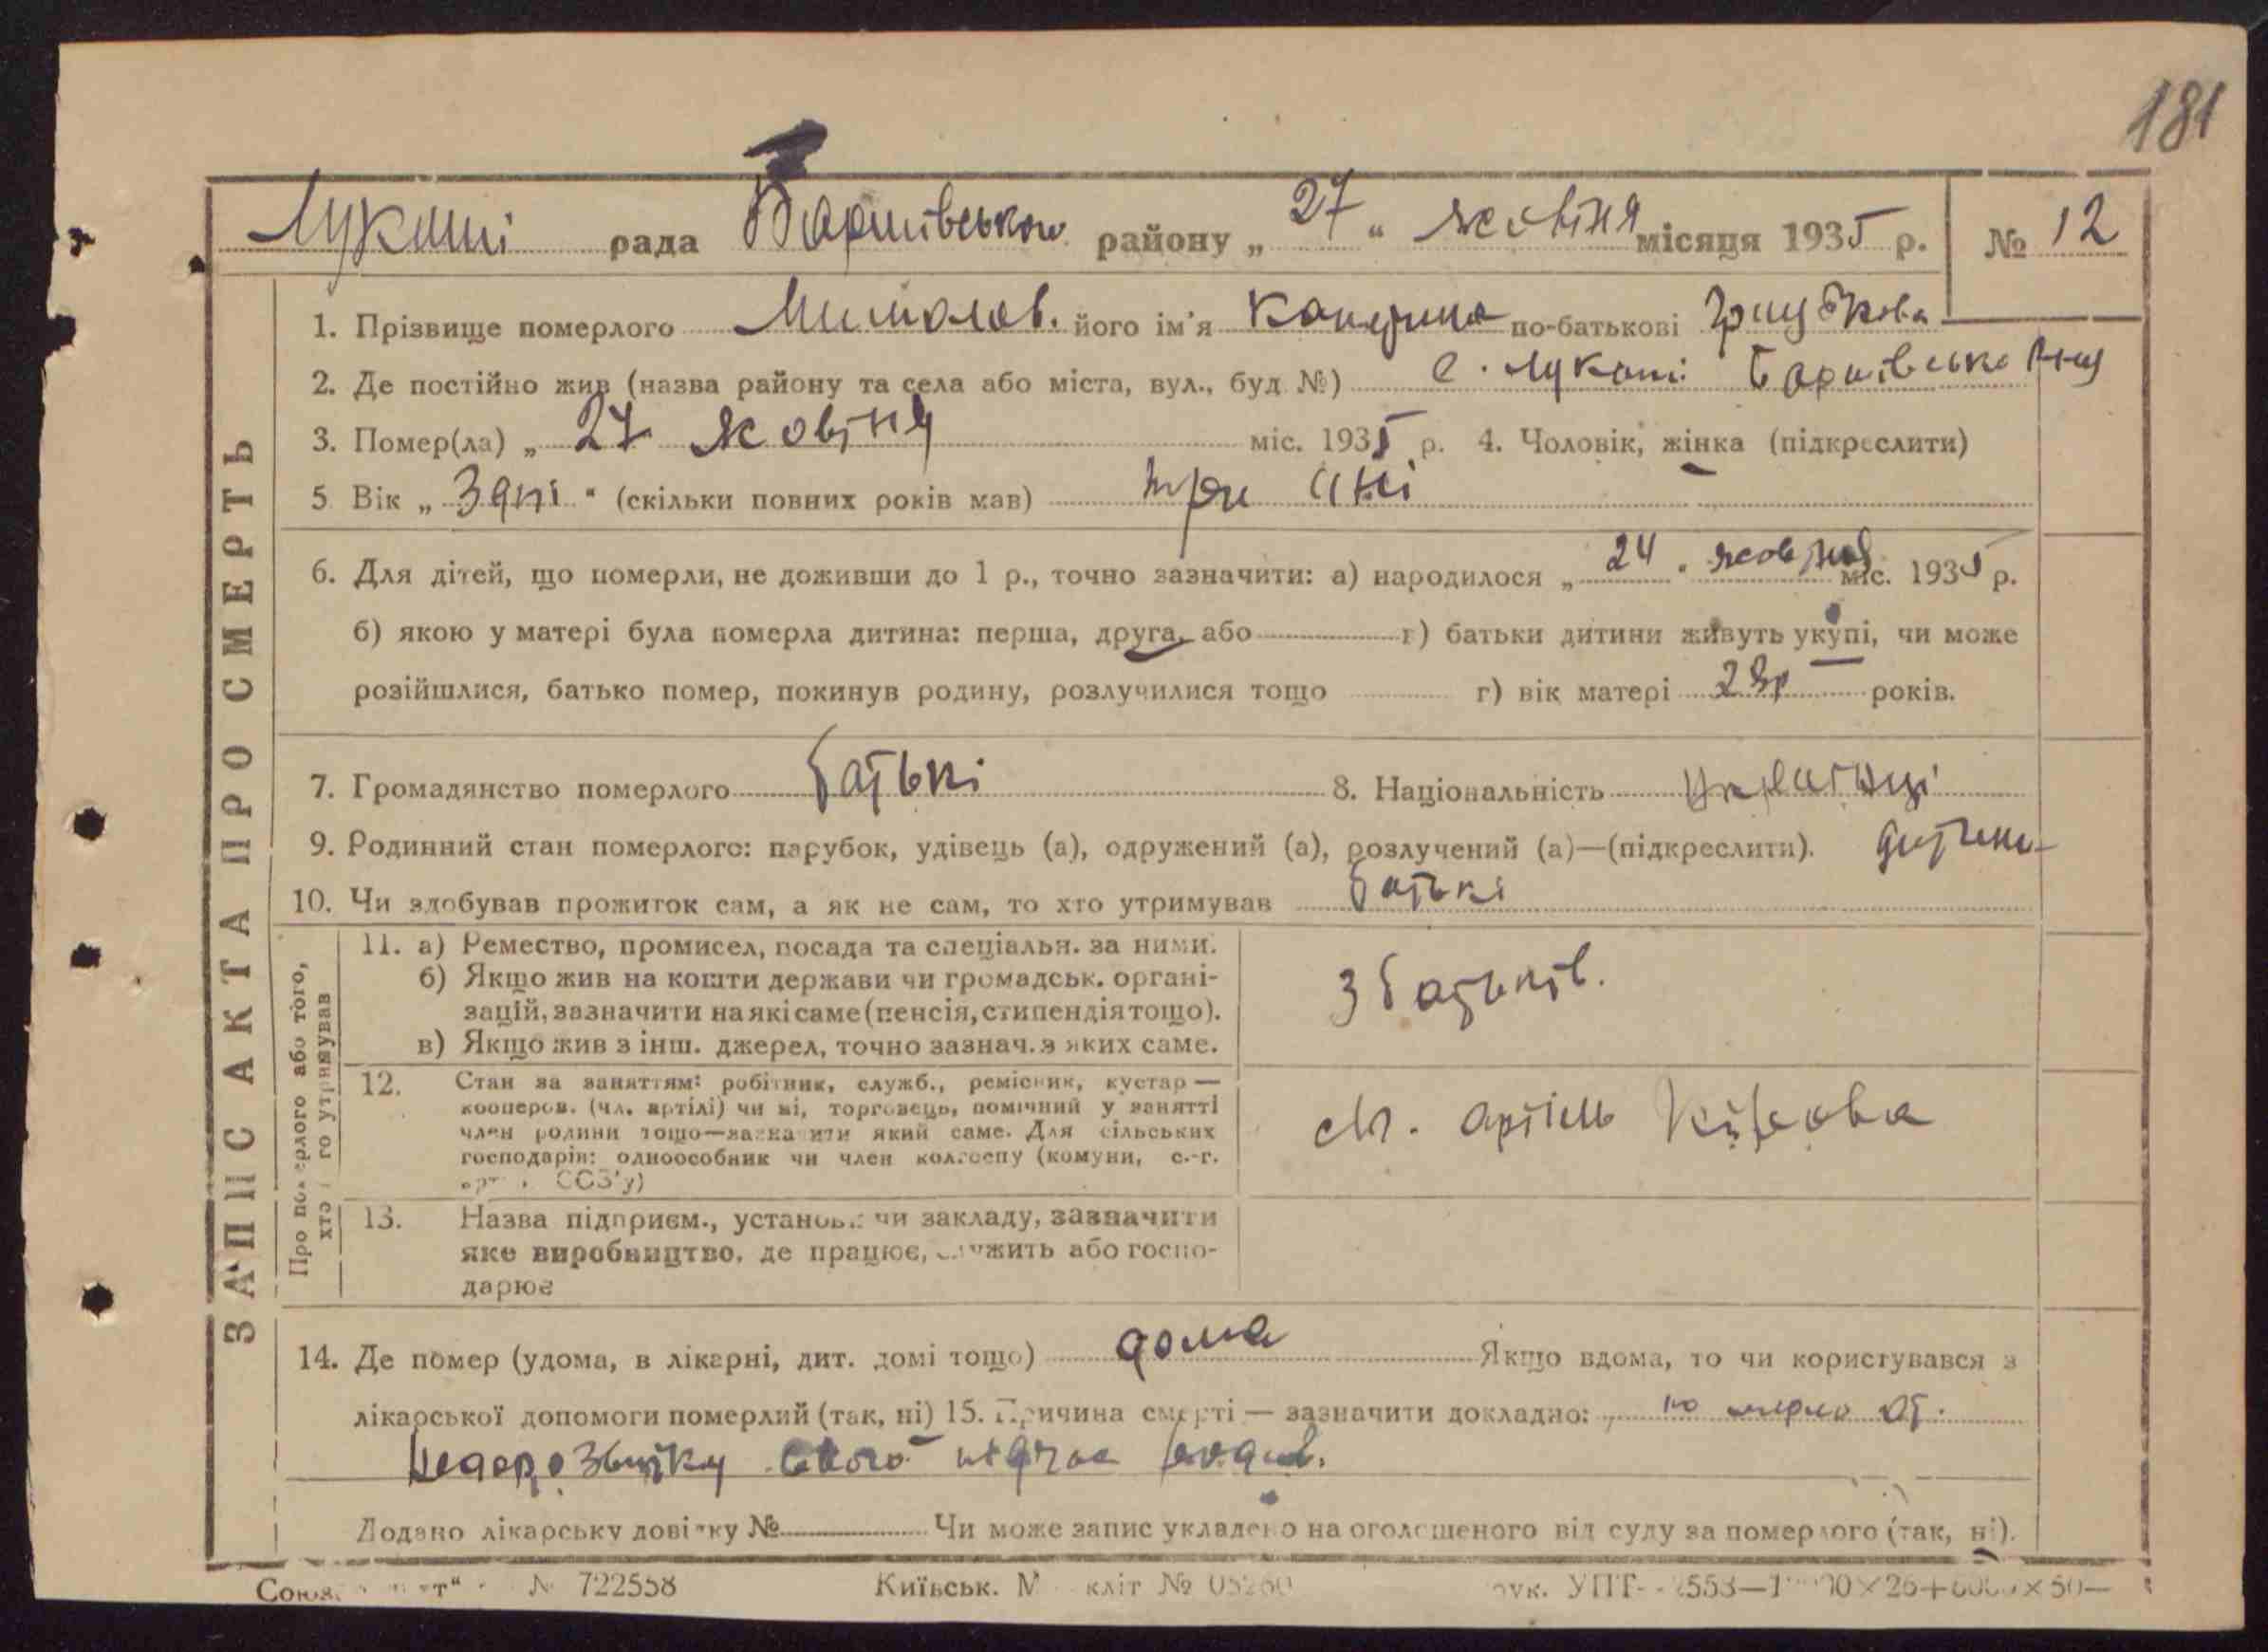 181
Лукаші рада Баришівського району „ 27 “ жовтня місяця 1935 р. № 12
1. Прізвище померлого його ім'я Катерина по-батькові
2. Де постійно жив (назва району та села або міста, вул., буд. №) с. Лукаші
3. Помер(ла) „ 27 жовтня міс. 1935 р. 4. Чоловік, жінка (підкреслити)
5. Вік „ 3 дні “ (скільки повних років мав) три дні
6. Для дітей, що померли, не доживши до 1 р., точно зазначити: а) народилося „ 24 “ жовтня міс. 1935 р.
б) якою у матері була померла дитина: перша, друга, або г) батьки дитини живуть укупі, чи може
розійшлися, батько помер, покинув родину, розлучилися тощо г) вік матері 28 р років.
7. Громадянство померлого батькі 8. Національність українці
9. Родинний стан померлого: парубок, удівець (а), одружений (а), розлучений (а)—(підкреслити). дитина
10. Чи здобував прожиток сам, а як не сам, то хто утримував батькі
Про померлого або того,
хто його утримував
11. а) Ремество, промисел, посада та спеціальн. за ними.
б) Якщо жив на кошти держави чи громадськ. органі-
зацій, зазначити на які саме (пенсія, стипендія тощо).
в) Якщо жив з інш. джерел, точно зазнач. з яких саме.
З батьків.
12. Стан за заняттям: робітник, служб., ремісник, кустар —
кооперов. (чл. артілі) чи ні, торговець, помічний у занятті
член родини тощо—зазначити який саме. Для сільських
господарів: одноособник чи член колгоспу (комуни, с.-г.
арт. СОЗ'у)
артіль Кірова
13. Назва підприєм., установи чи закладу, зазначити
яке виробництво, де працює, служить або госпо-
дарює
14. Де помер (удома, в лікарні, дит. домі тощо) дома Якщо вдома, то чи користувався з
лікарської допомоги померлий (так, ні) 15. Причина смерті — зазначити докладно: померла от
недорозвитку
Додано лікарську довідку № Чи може запис укладено на оголошеного від суду за померлого (так, ні).
ЗАПИС АКТА ПРО СМЕРТЬ
№ 722558 Київськ.